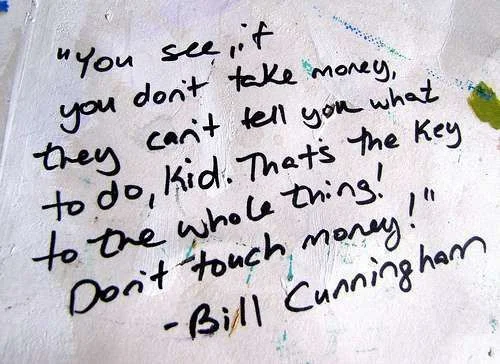 "You see, if
you don't take money,
they can't tell you what
to do, kid. That's the key
to the whole thing!
Don't touch money!"
- Bill Cunningham